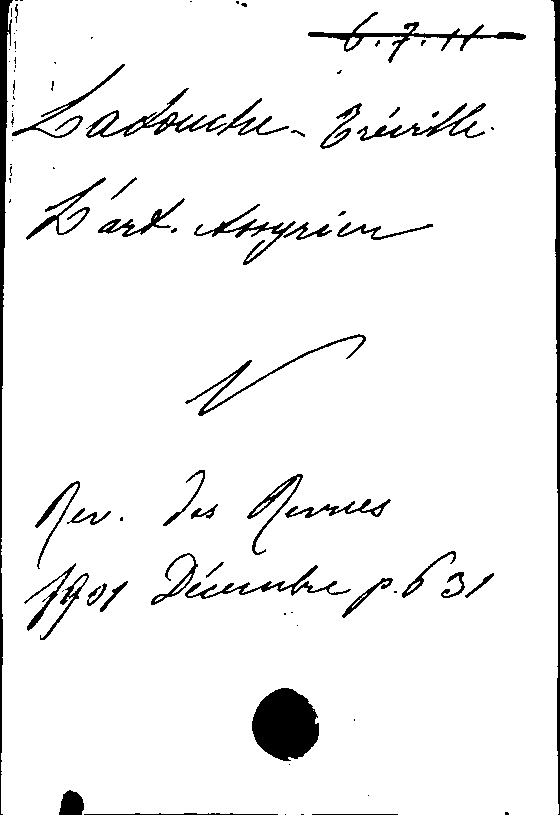 6.7.11
Ladouche-Tréville.
L'art. assyrien
Rev. des Revues
1901 Décembre p. 631